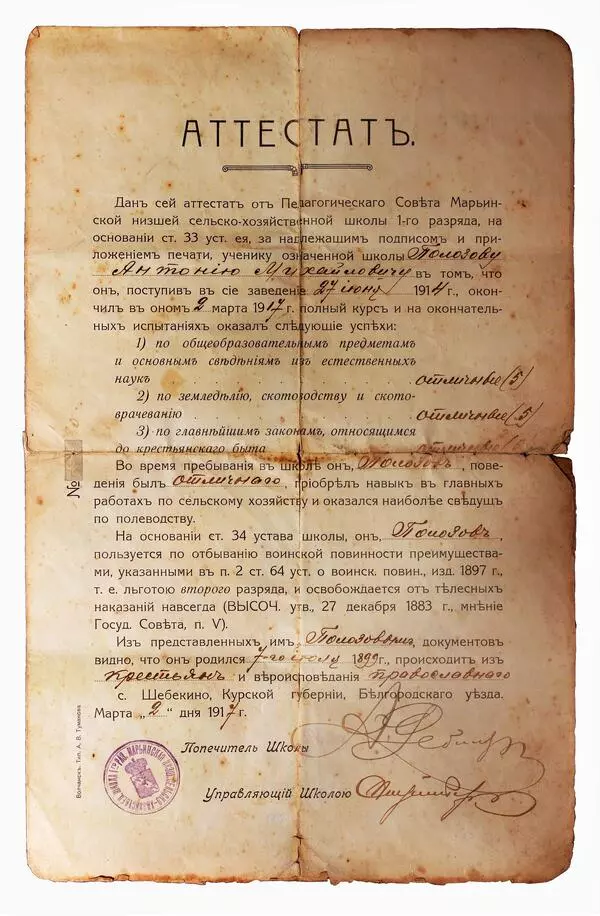 АТТЕСТАТЪ.
Данъ сей аттестатъ отъ Педагогическаго Совѣта Марьин-
ской низшей сельско-хозяйственной школы 1-го разряда, на
основаніи ст. 33 уст. ея, за надлежащимъ подписомъ и при-
ложеніемъ печати, ученику означенной школы Полозову
Антонію Михайловичу въ томъ, что
онъ, поступивъ въ сіе заведеніе 27 іюня 1914 г., окон-
чилъ въ ономъ 2 марта 1917 г. полный курсъ и на окончатель-
ныхъ испытаніяхъ оказалъ слѣдующіе успѣхи:
1) по общеобразовательнымъ предметамъ
и основнымъ свѣдѣніямъ изъ естественныхъ
наукъ . . . отличные (5)
2) по земледѣлію, скотоводству и ското-
врачеванію . . . отличные (5)
3) по главнѣйшимъ законамъ, относящимся
до крестьянскаго быта отличные (5
Во время пребыванія въ школѣ онъ, Полозовъ, пове-
денія былъ отличнаго, пріобрѣлъ навыкъ въ главныхъ
работахъ по сельскому хозяйству и оказался наиболѣе свѣдущъ
по полеводству.
№
На основаніи ст. 34 устава школы, онъ, Полозовъ,
пользуется по отбыванію воинской повинности преимущества-
ми, указанными въ п. 2 ст. 64 уст. о воинск. повин., изд. 1897 г.,
т. е. льготою второго разряда, и освобождается отъ тѣлесныхъ
наказаній навсегда (ВЫСОЧ. утв., 27 декабря 1883 г., мнѣніе
Госуд. Совѣта, п. V).
Изъ представленныхъ имъ, Полозовымъ, документовъ
видно, что онъ родился 7-го іюлу 1899 г., происходитъ изъ
крестьянъ и вѣроисповѣданія православнаго
с. Шебекино, Курской губерніи, Бѣлгородскаго уѣзда.
Марта „2" дня 1917 г.
Попечитель Школы
Управляющій Школою
Волчанскъ. Тип. А. В. Туманова